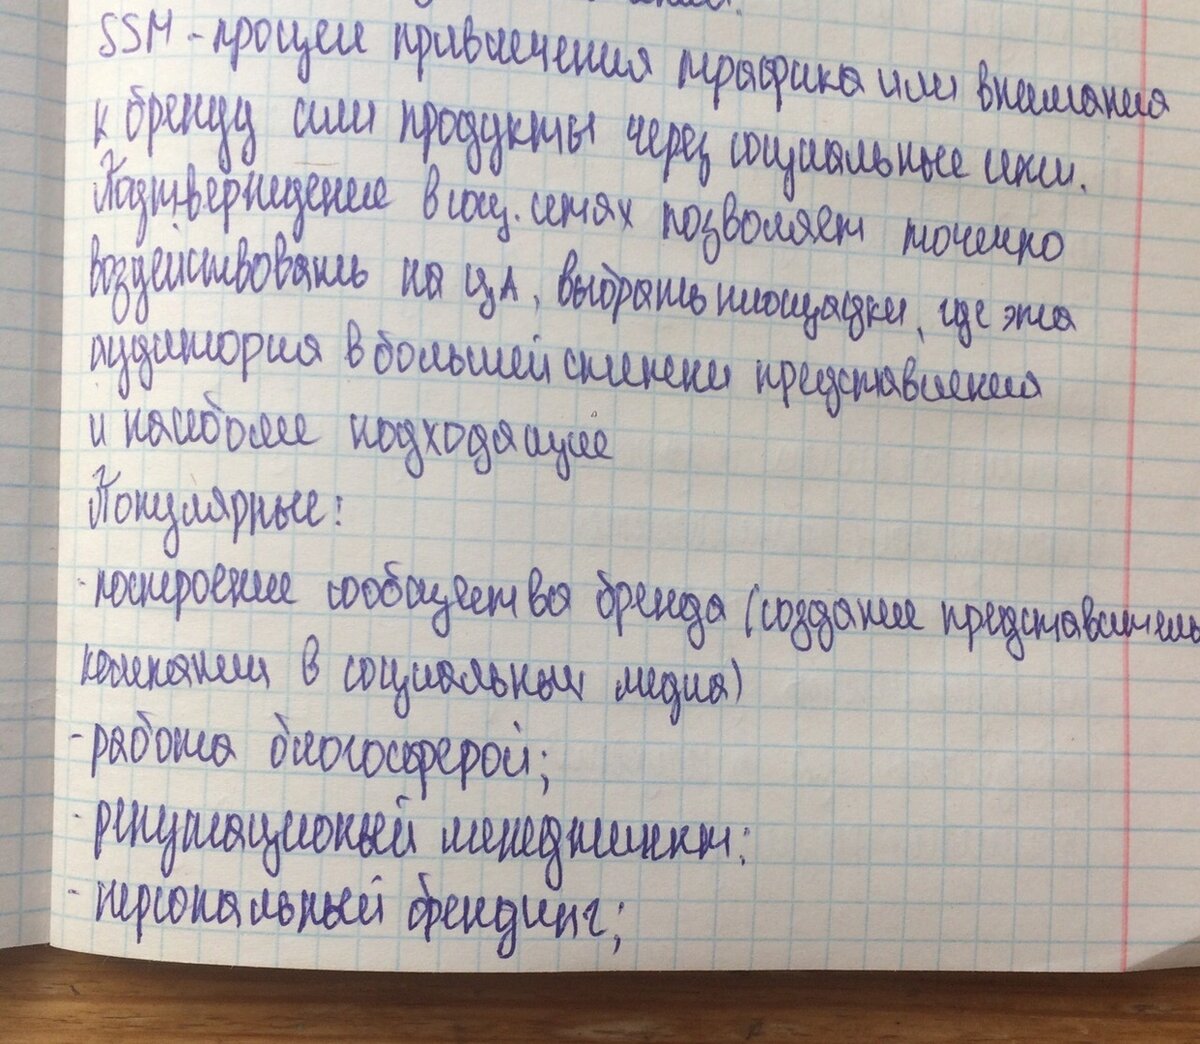 SSM - процесс привлечения трафика или внимания
к бренду или продукты через социальные сети.
Подтверждение в соц. сетях позволяет точечно
воздействовать на ЦА, выбрать площадки, где эта
аудитория в большей степени представлена
и наиболее подходящие
Популярные:
- построение сообщества бренда (создание представитель
компании в социальных медиа)
- работа блогосферой;
- репутационый менеджмент;
- персональный брендинг;